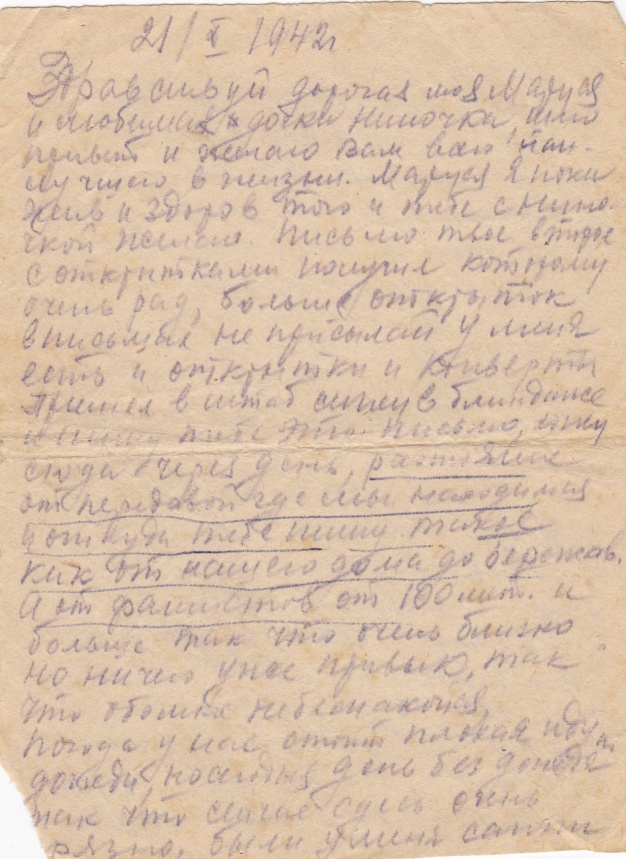 21/X 1942г
Здравствуй дорогая моя Маруся
и любимая дочка Ниночка, шлю
привет и желаю вам всего наи-
лучшего в жизни. Маруся я пока
жив и здоров того и тебе с Нино-
чкой желаю. Письмо твое второе
с открытками получил которому
очень рад, больше открыток
в письмах не присылай у меня
есть и открытки и конверты
пришел в штаб сижу в блиндаже
и пишу тебе это письмо, хожу
сюда через день, растояние
от передовой где мы находимся
и откуда тебе пишу такое
как от нашего дома до
А от фашистов от 100 мет. и
больше так что очень близко
но ничего уже привык, так
что обо мне не беспокойся,
погода у нас стоит плохая идут
дожди, но сегодня день без дождя
так что сейчас здесь очень
грязно, были у меня сапоги